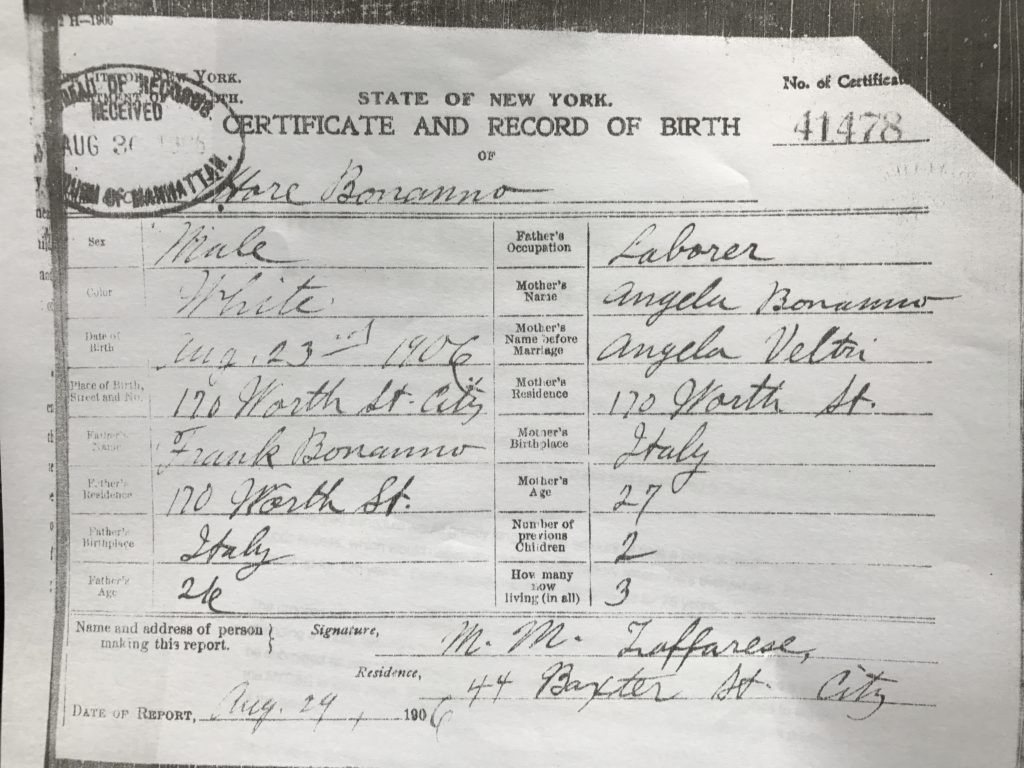 H—1906
CITY OF NEW YORK.
DEPARTMENT OF HEALTH.
STATE OF NEW YORK.
No. of Certificate
CERTIFICATE AND RECORD OF BIRTH
41478
OF
BUREAU OF RECORDS
RECEIVED
AUG 30 1906
OF MANHATTAN.
Bonanno
Sex Male
Father's Occupation Laborer
Color White
Mother's Name Angela Bonanno
Date of Birth Aug. 23nd 1906
Mother's Name before Marriage Angela Veltri
Place of Birth, Street and No. 170 Worth St. City
Mother's Residence 170 Worth St.
Father's Name Frank Bonanno
Mother's Birthplace Italy
Father's Residence 170 Worth St.
Mother's Age 27
Father's Birthplace Italy
Number of previous Children 2
Father's Age 26
How many now living (in all) 3
Name and address of person making this report. Signature, M. M. Zaffarese,
Residence, 44 Baxter St City
DATE OF REPORT, Aug. 29, 1906